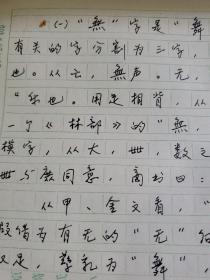 (一)"無"字是"舞
有关的字分割为三字,
也。从亡,無声。无,
"乐也。用足相背,从
一个《林部》的"無,
模字,从大,𠦜数之
𠦜与庶同意,商书曰:
从甲、金文看,"
假借为有无的"无"
又足,孳乳为"舞",